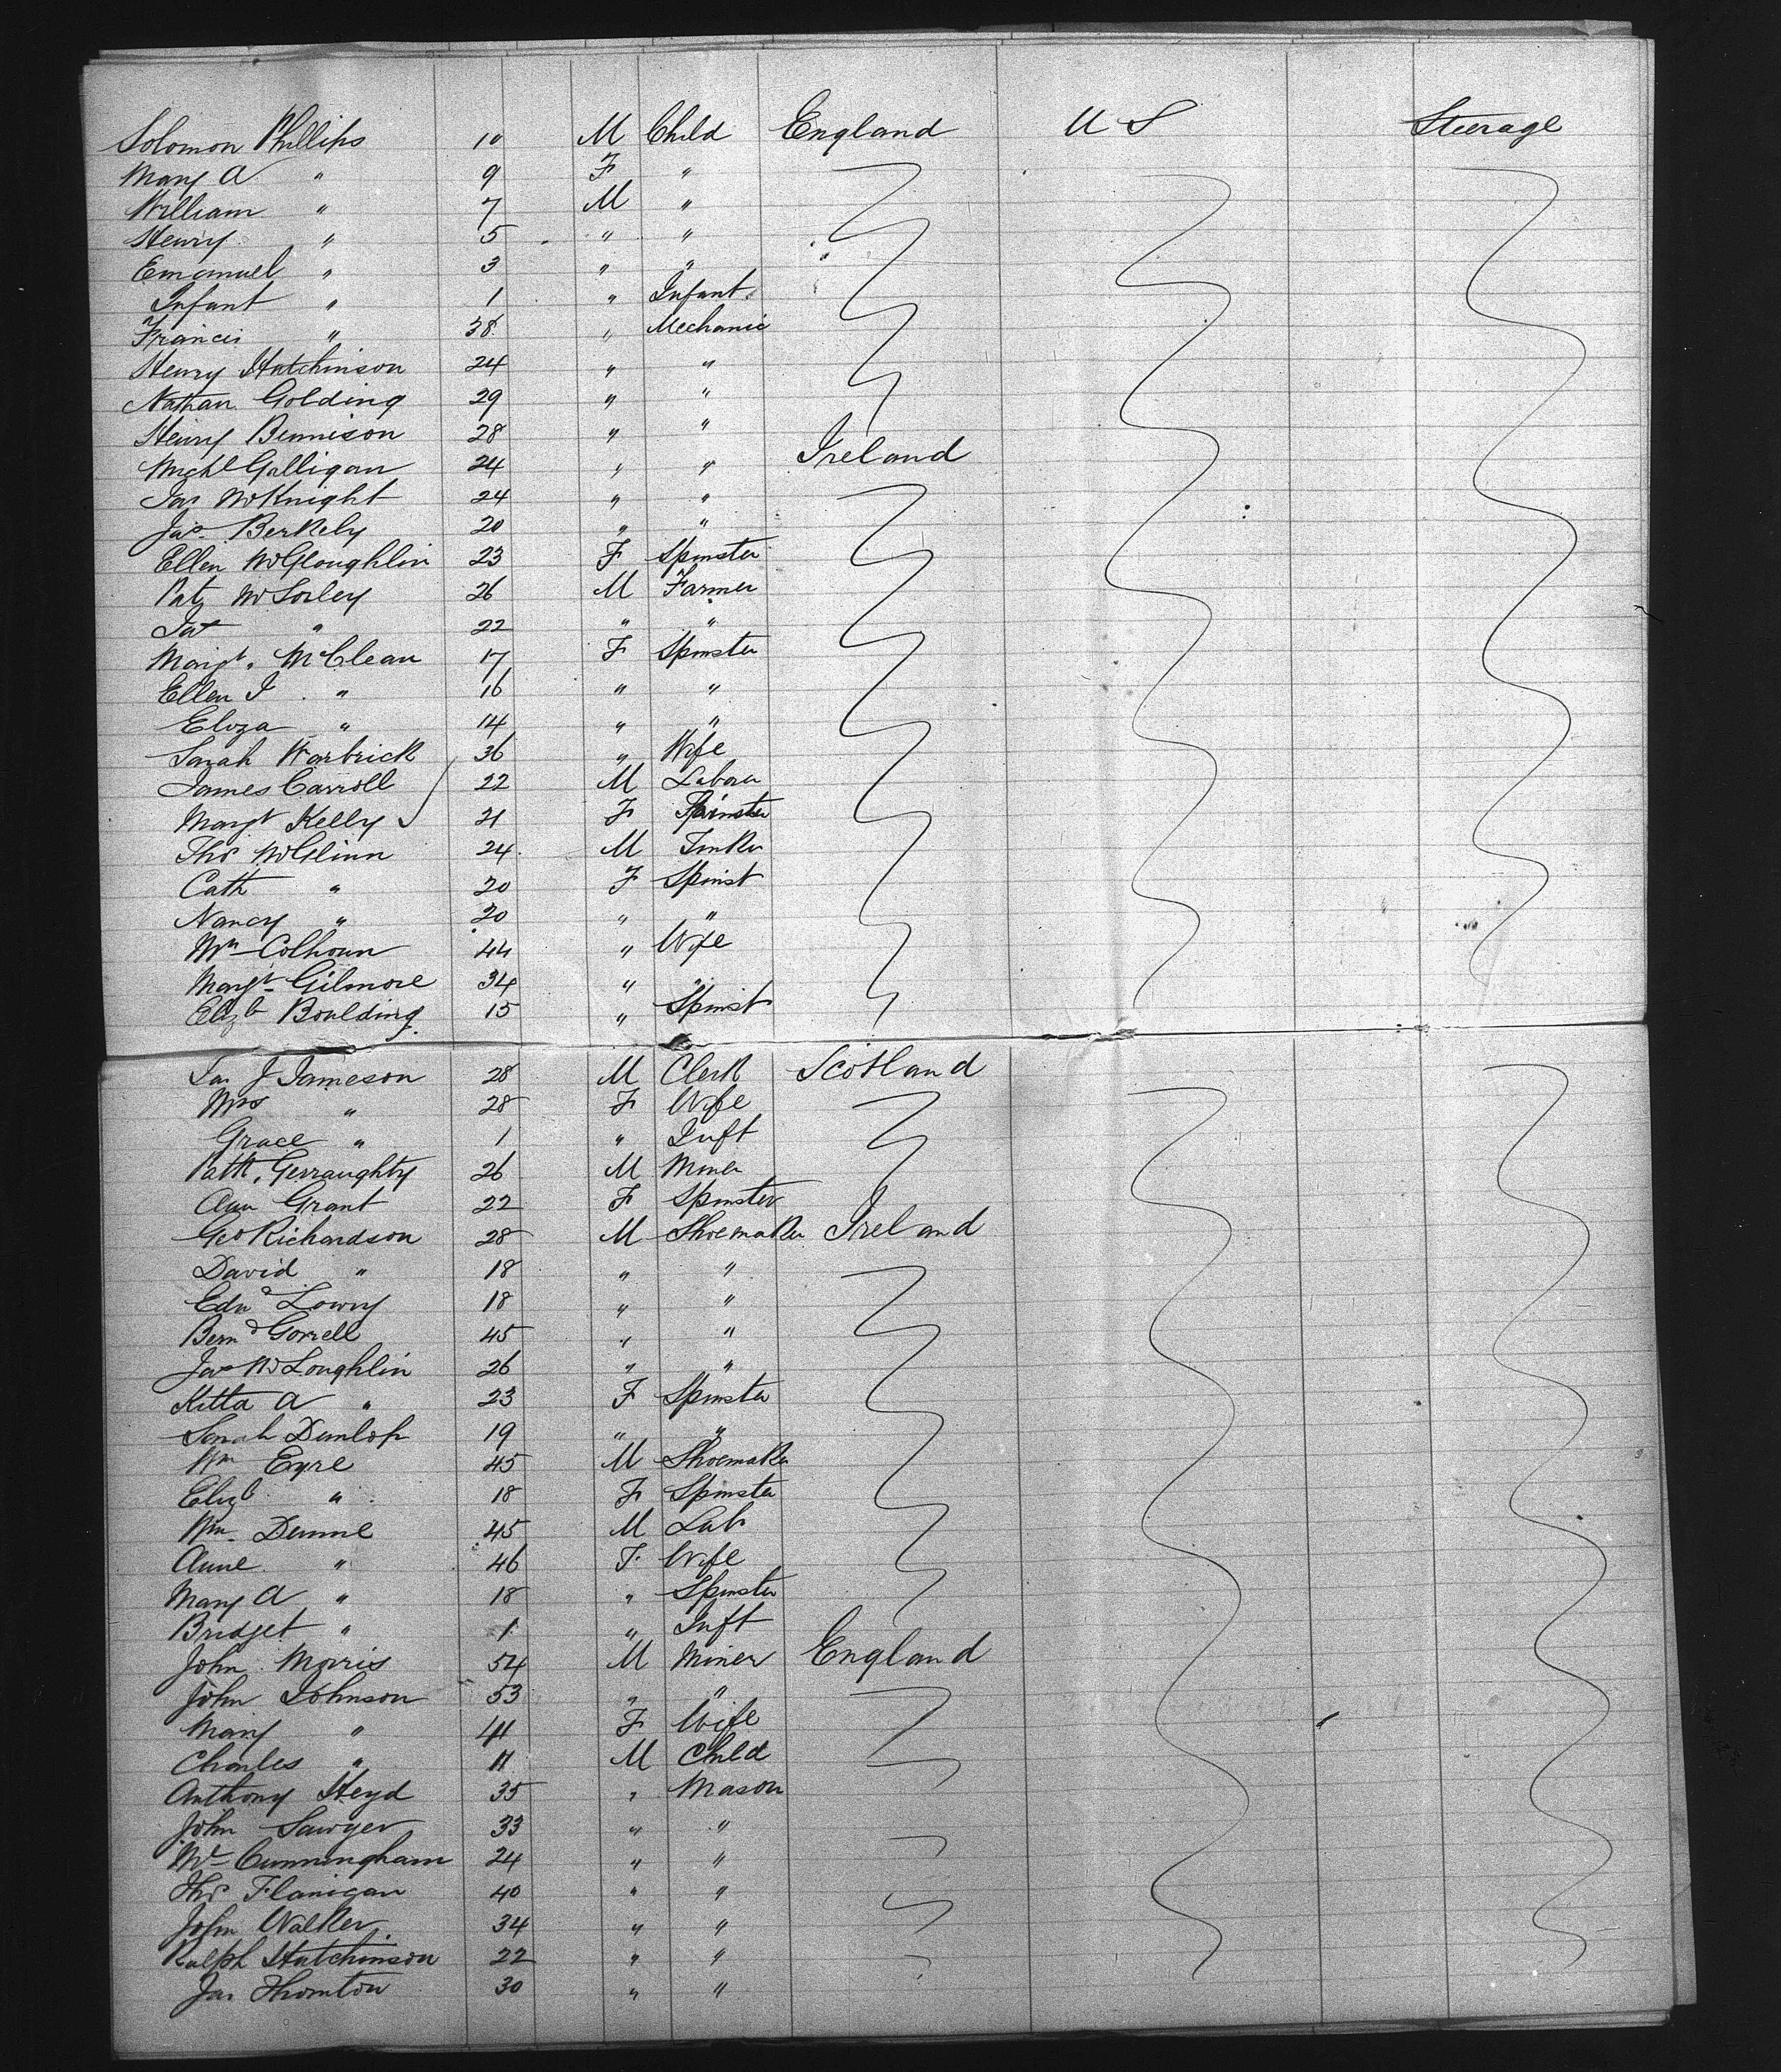 Solomon Phillips 10 M Child England U S Steerage
Mary A " 9 F "
William " 7 M "
Henry " 5 " "
Emanuel " 3 " "
Infant " 1 " Infant
Francis " 38 " Mechanic
Henry Hutchinson 24 " "
Nathan Golding 29 " "
Henry Bennison 28 " "
Michl Galligan 24 " " Ireland
Jas McKnight 24 " "
Jas Berkely 20 " "
Ellen McGloughlin 23 F Spinster
Pat McSorley 26 M Farmer
Jas " 22 " "
Margt. McClean 17 F Spinster
Ellen J " 16 " "
Eliza " 14 " "
Sarah Warbrick 36 " Wife
James Carroll 22 M Laborer
Margt Kelly 21 F Spinster
Thos McGlinn 24 M Tinker
Cath " 20 F Spinst
Nancy " 20 " "
Colhoun 44 " Wife
Margt Gilmore 34 " "
Elizb Boulding 15 " Spinst
Jas J Jameson 28 M Clerk Scotland
Mrs " 28 F Wife
Grace " 1 " Inft
Patk. Gerraughty 26 M Miner
Ann Grant 22 F Spinster
Geo Richardson 28 M Shoemaker Ireland
David " 18 " "
Edwd Lowry 18 " "
Bernd Gorrell 45 " "
Jas McLoughlin 26 " "
Kitta A " 23 F Spinster
Sarah Dunlop 19 " "
Wm Eyre 45 M Shoemaker
Elizb " 18 F Spinster
Wm Dunne 45 M Lab
Anne " 46 F Wife
Mary A " 18 " Spinster
Bridget " 1 " Inft
John Morris 54 M Miner England
John Johnson 53 " "
Mary " 41 F Wife
Charles " 11 M Child
Anthony Heyd 35 " Mason
John Sawyer 33 " "
Cunningham 24 " "
Thos Flanigan 40 " "
John Walker 34 " "
Ralph Hutchinson 22 " "
Jas Thornton 30 " "